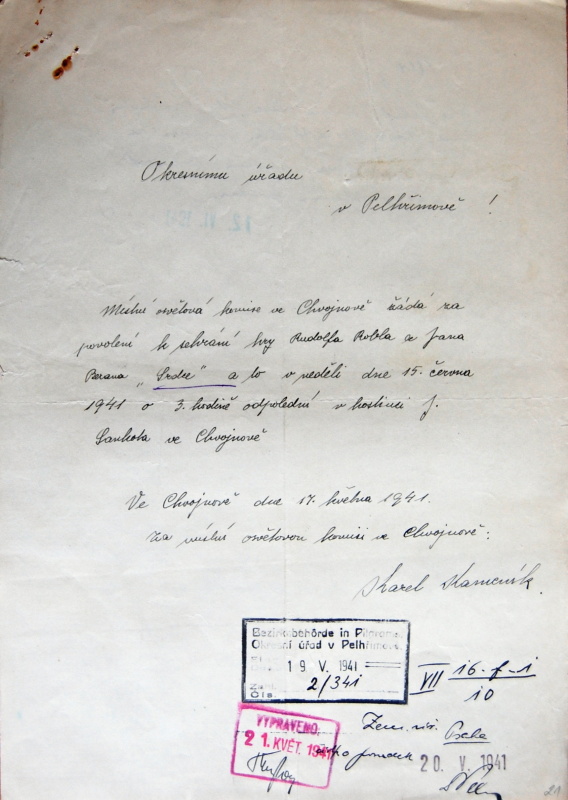 Okresnímu úřadu
v Pelhřimově !
Místní osvětová komise ve Chvojnově žádá za
povolení k sehrání hry Rudolfa Robla a Jana
Berana „Srdce" a to v neděli dne 15. června
1941 o 3. hodině odpolední v hostinci J.
Sankota ve Chvojnově
Ve Chvojnově dne 17. května 1941.
Za místní osvětovou komisi ve Chvojnově:
Karel Kameník.
Bezirksbehörde in Pilgrams
Okresní úřad v Pelhřimově
19. V. 1941
Zahl
Čís. 2/341
VII 16-f-1
10
VYPRAVENO:
21. KVĚT. 1941
20. V. 1941
21